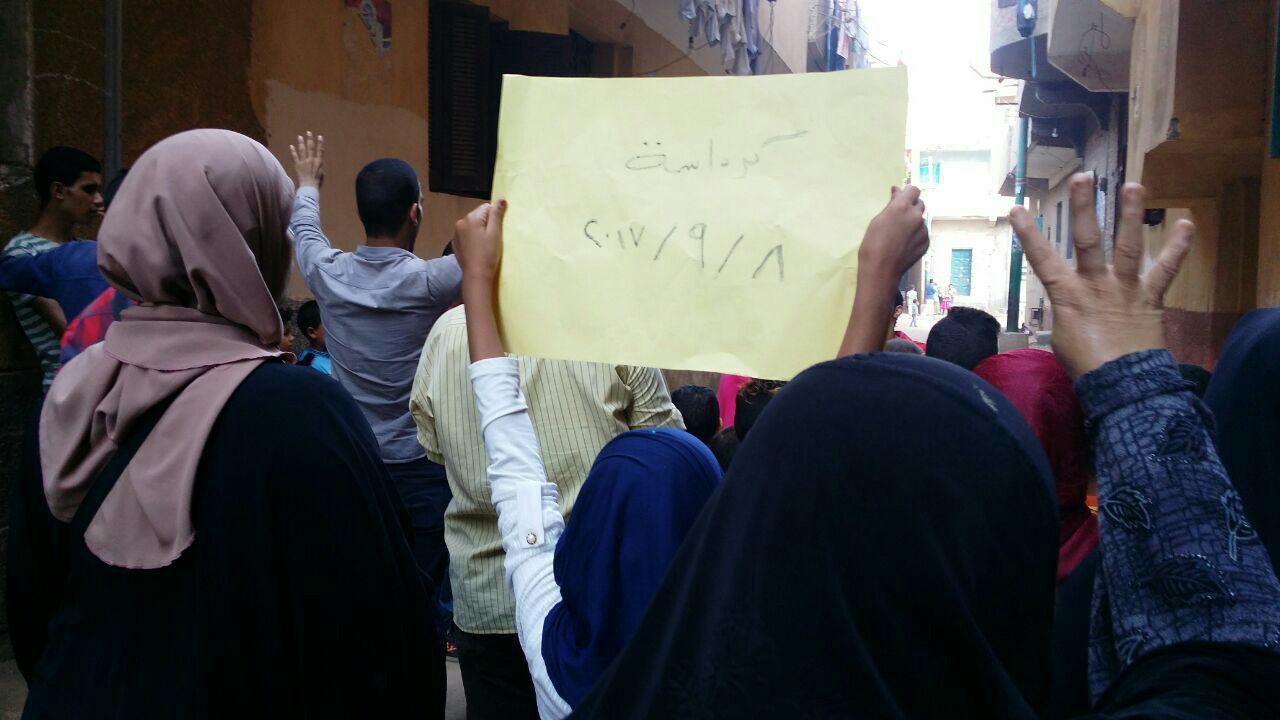 كرداسة
٢٠١٧/٩/٨